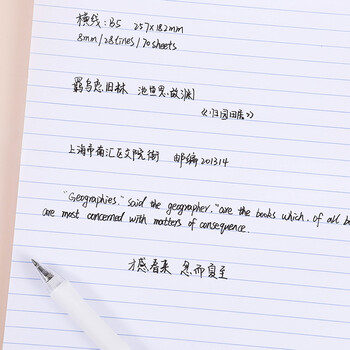 横线：B5 257×182mm
8mm/28lines/70sheets
羁鸟恋旧林 池鱼思故渊
《归园田居》
上海市南汇区交院街 邮编201314
"Geographies," said the geographer, "are the books which, of all b
are most concerned with matters of consequence.
才感春来 忽而夏至